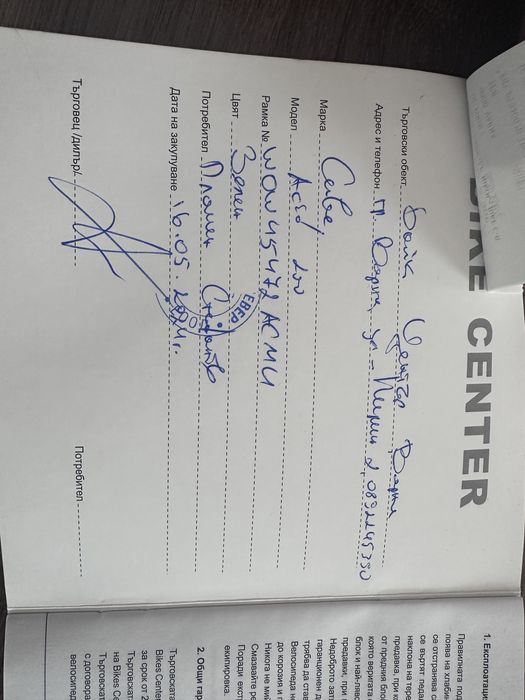 BIKE CENTER
Търговски обект Байк Център Варна
Адрес и телефон гр. Варна, ул. Пирин 2, 0892245390
Марка Cube
Модел Acid 200
Рамка № WOW45472ACMU
Цвят Зелен
Потребител Пламен
Дата на закупуване 16.05.2024г.
Търговец /дилър/
Потребител
ЕВЕР
ООД
1. Експлоатация
Правилната под
поява на хлаби
се отстранява с
се въртят педа
наклона на тере
предавка, при к
от предния блок
която веригата
блок и най-ляво
предавки, при
Недоброто зат
гаранционен д
трябва да став
Велосипеда не
до корозия и п
Никога не ми
Смазвайте ре
Поради експл
екипировка.
2. Общи гар
Търговската
Bikes Center
за срок от 2
Търговскат
на Bikes Ce
Търговскат
с договора
велосипед